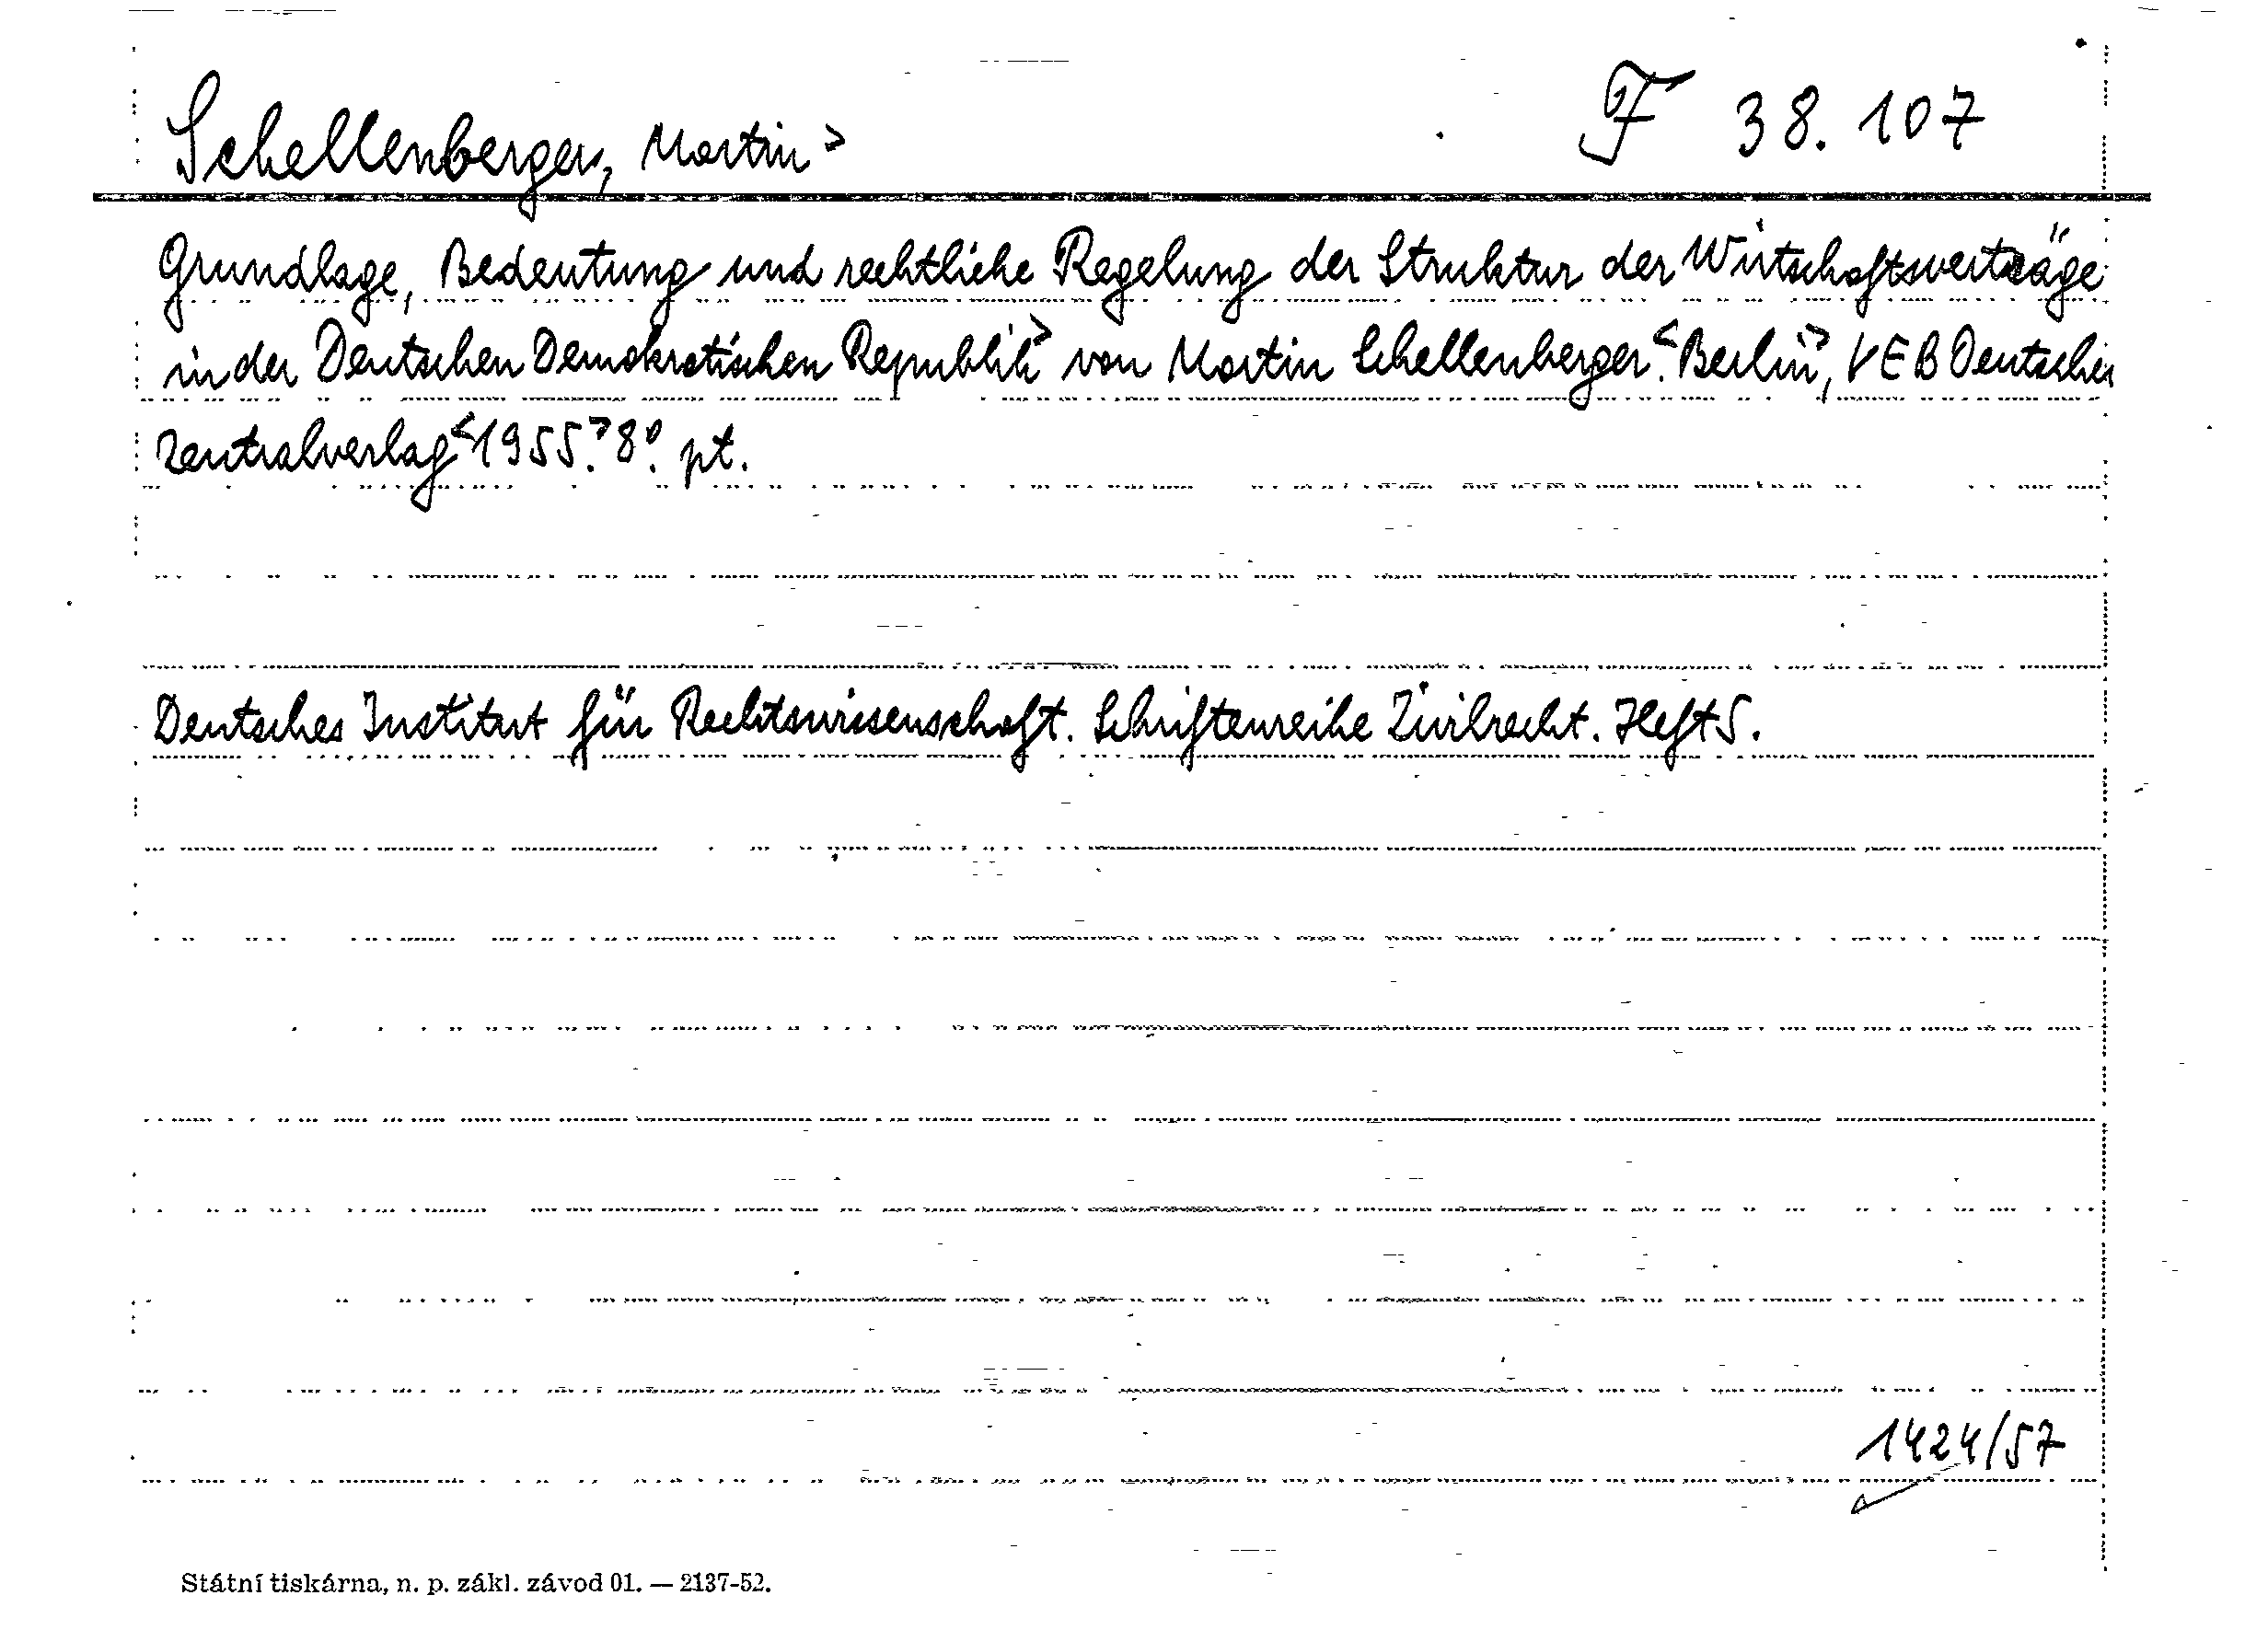 Schellenberger, Martin>
F 38.107
Grundlage, Bedeutung und rechtliche Regelung der Struktur der Wirtschaftsverträge
in der Deutschen Demokratischen Republik> von Martin Schellenberger. <Berlin>, VEB Deutscher
Zentralverlag <1955.> 8°. pt.
Deutsches Institut für Rechtswissenschaft. Schriftenreihe Zivilrecht. Heft 5.
1424/57
Státní tiskárna, n. p. zákl. závod 01. — 2137-52.